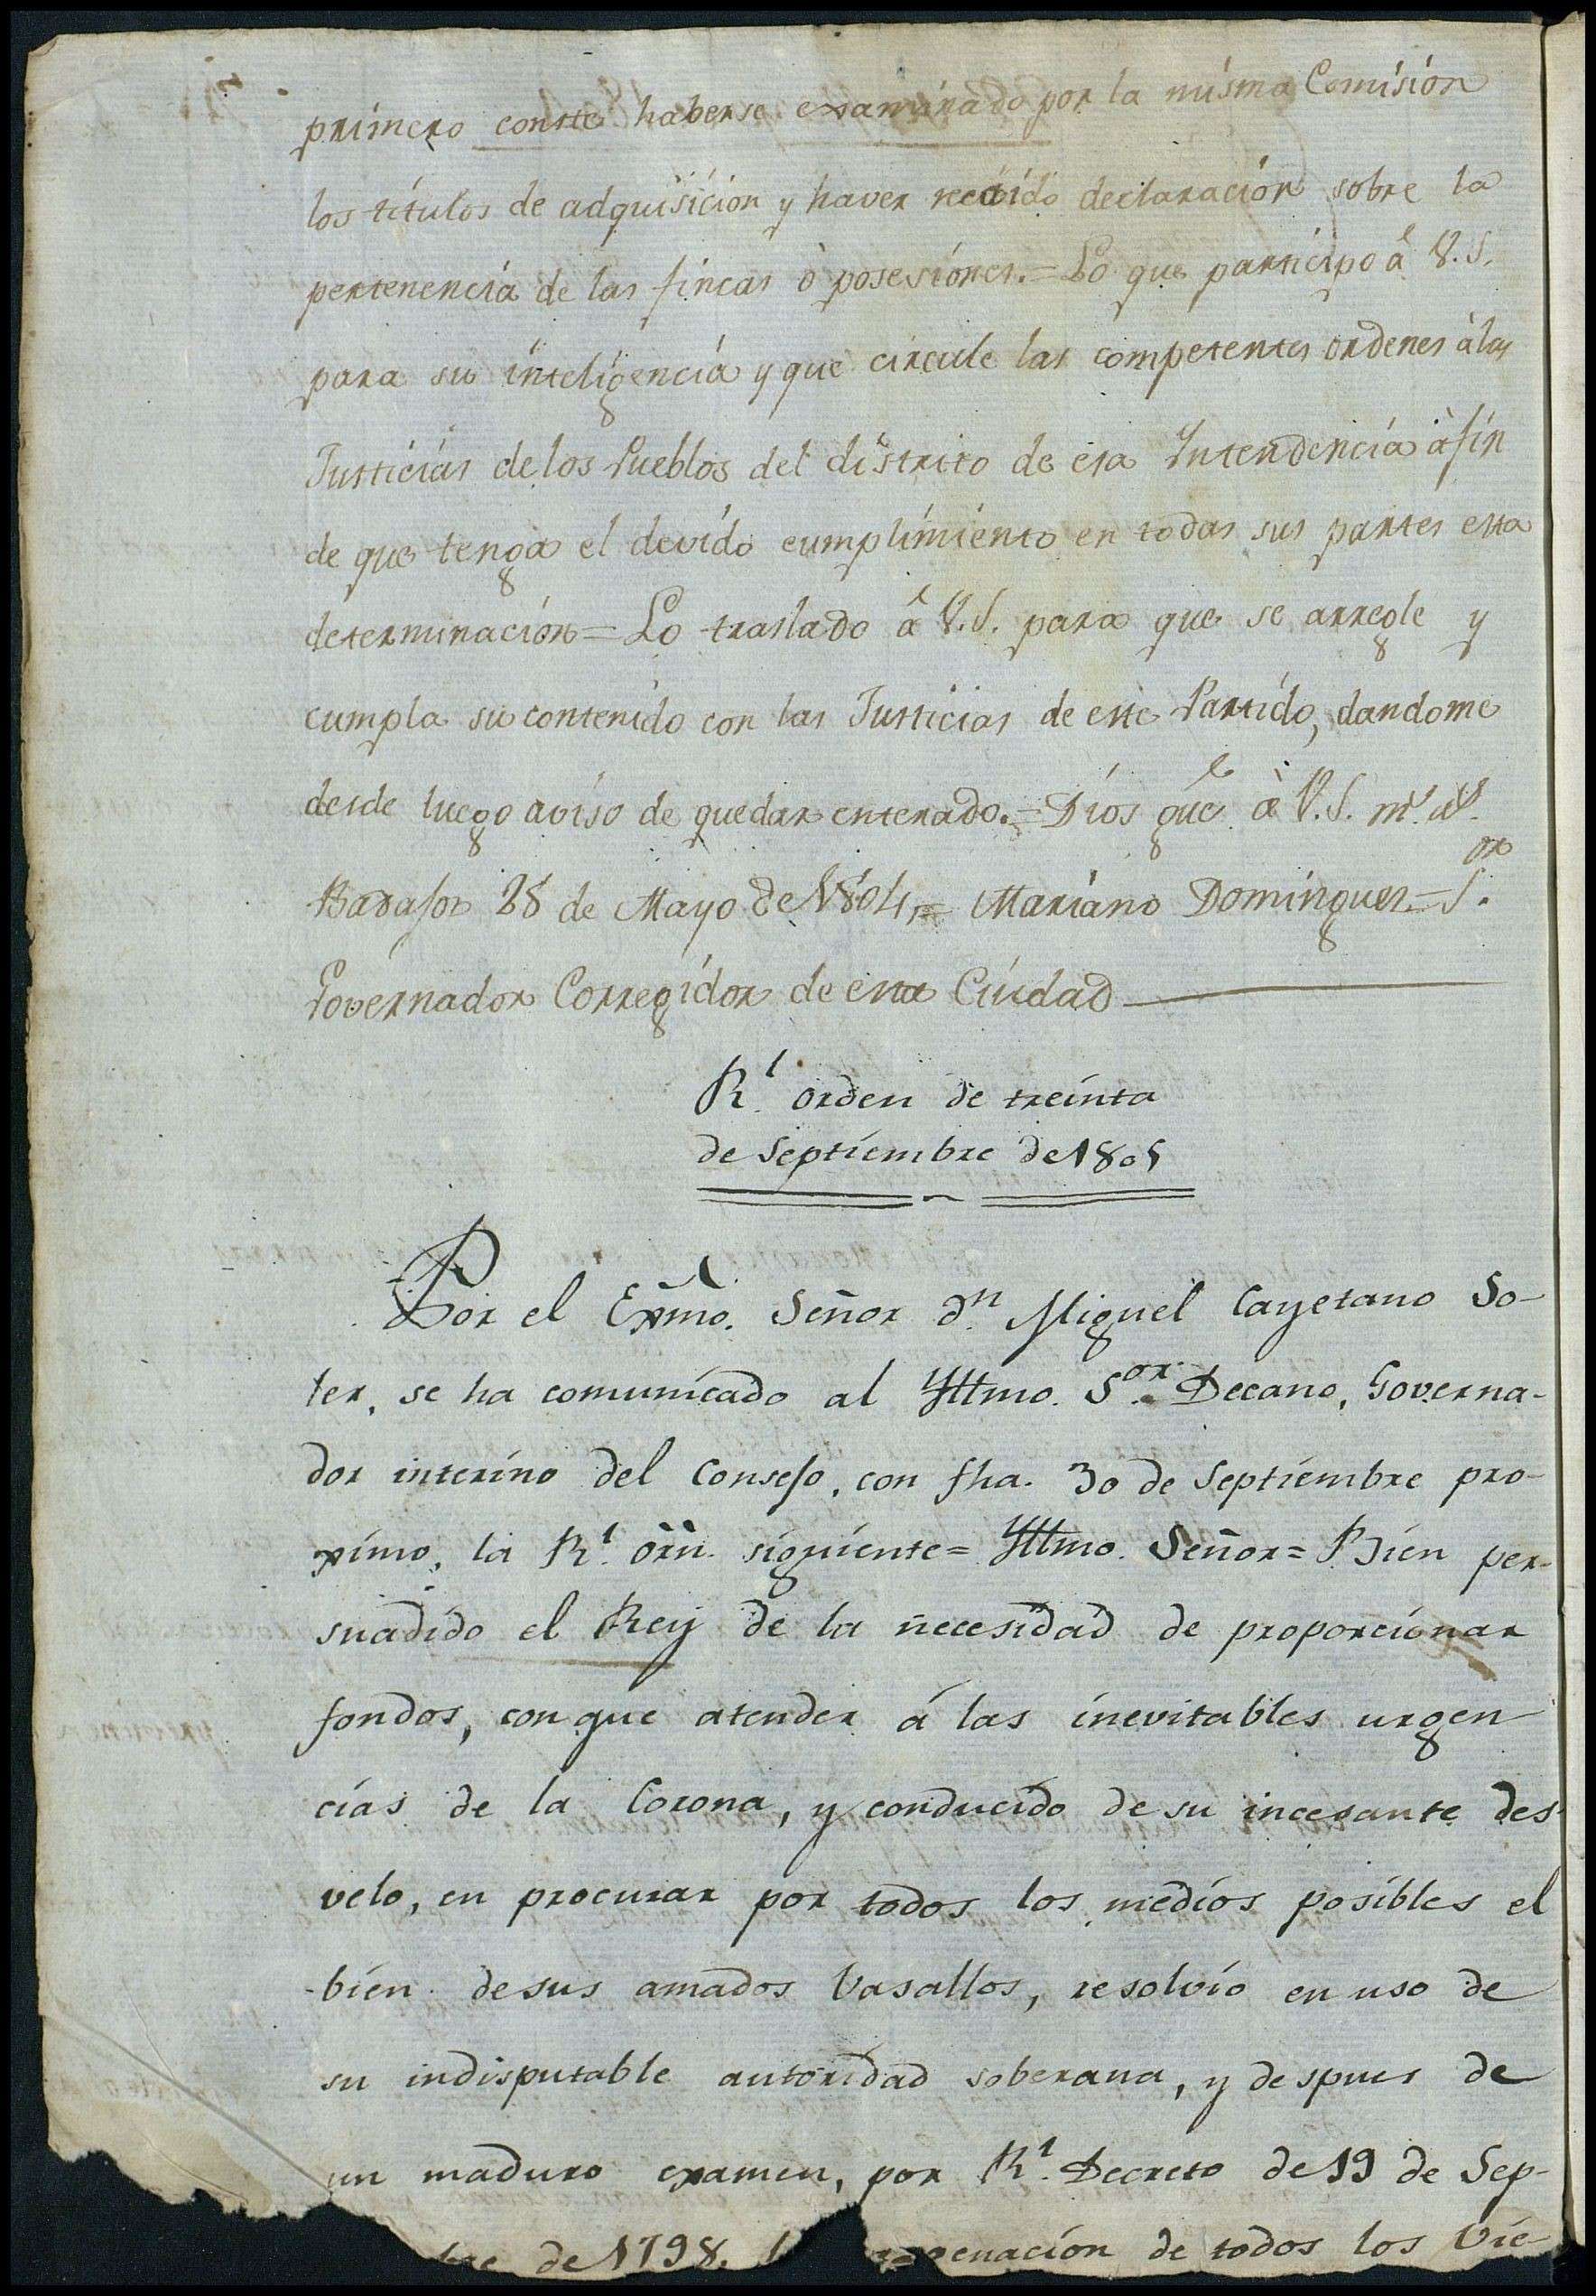 primero conste haberse examinado por la misma Comisión
los titulos de adquisición y haver recaído declaración sobre la
pertenencia de las fincas ò posesiónes.= Lo que participo â V.S.
para su inteligencia y que circule las competentes ordenes à las
Justicias de los Pueblos del distrito de esa Intendencia à fin
de que tenga el devido cumplimiento en todas sus partes esta
determinación= Lo traslado â V.S. para que se arregle y
cumpla su contenido con las Justicias de este Partido, dandome
desde luego aviso de quedar enterado.= Dios gũe à V.S. m.s a.s
Badajoz 28 de Mayo de 1804,= Mariano Dominguez= S.or
Governador Corregidor de esa Ciudad
R.l orden de treinta
de Septiembre de 1805
Por el Exmo. Señor d.n Miguel Cayetano So-
ler, se ha comunicado al Yltmo. S.or Decano, Governa-
dor interino del Consejo, con fha. 30 de Septiembre pro-
ximo, la R.l orñ. siguiente= Yltmo. Señor= Bien per-
suadido el Rey de la necesidad de proporcionar
fondos, con que atender á las inevitables urgen
cias de la Corona, y conducido de su incesante des-
velo, en procurar por todos los medios posibles el
bien de sus amados Vasallos, resolvio en uso de
su indisputable autoridad soberana, y despues de
un maduro examen, por R.l Decreto de 19 de Sep-
bre de 1798. enación de todos los Vie-